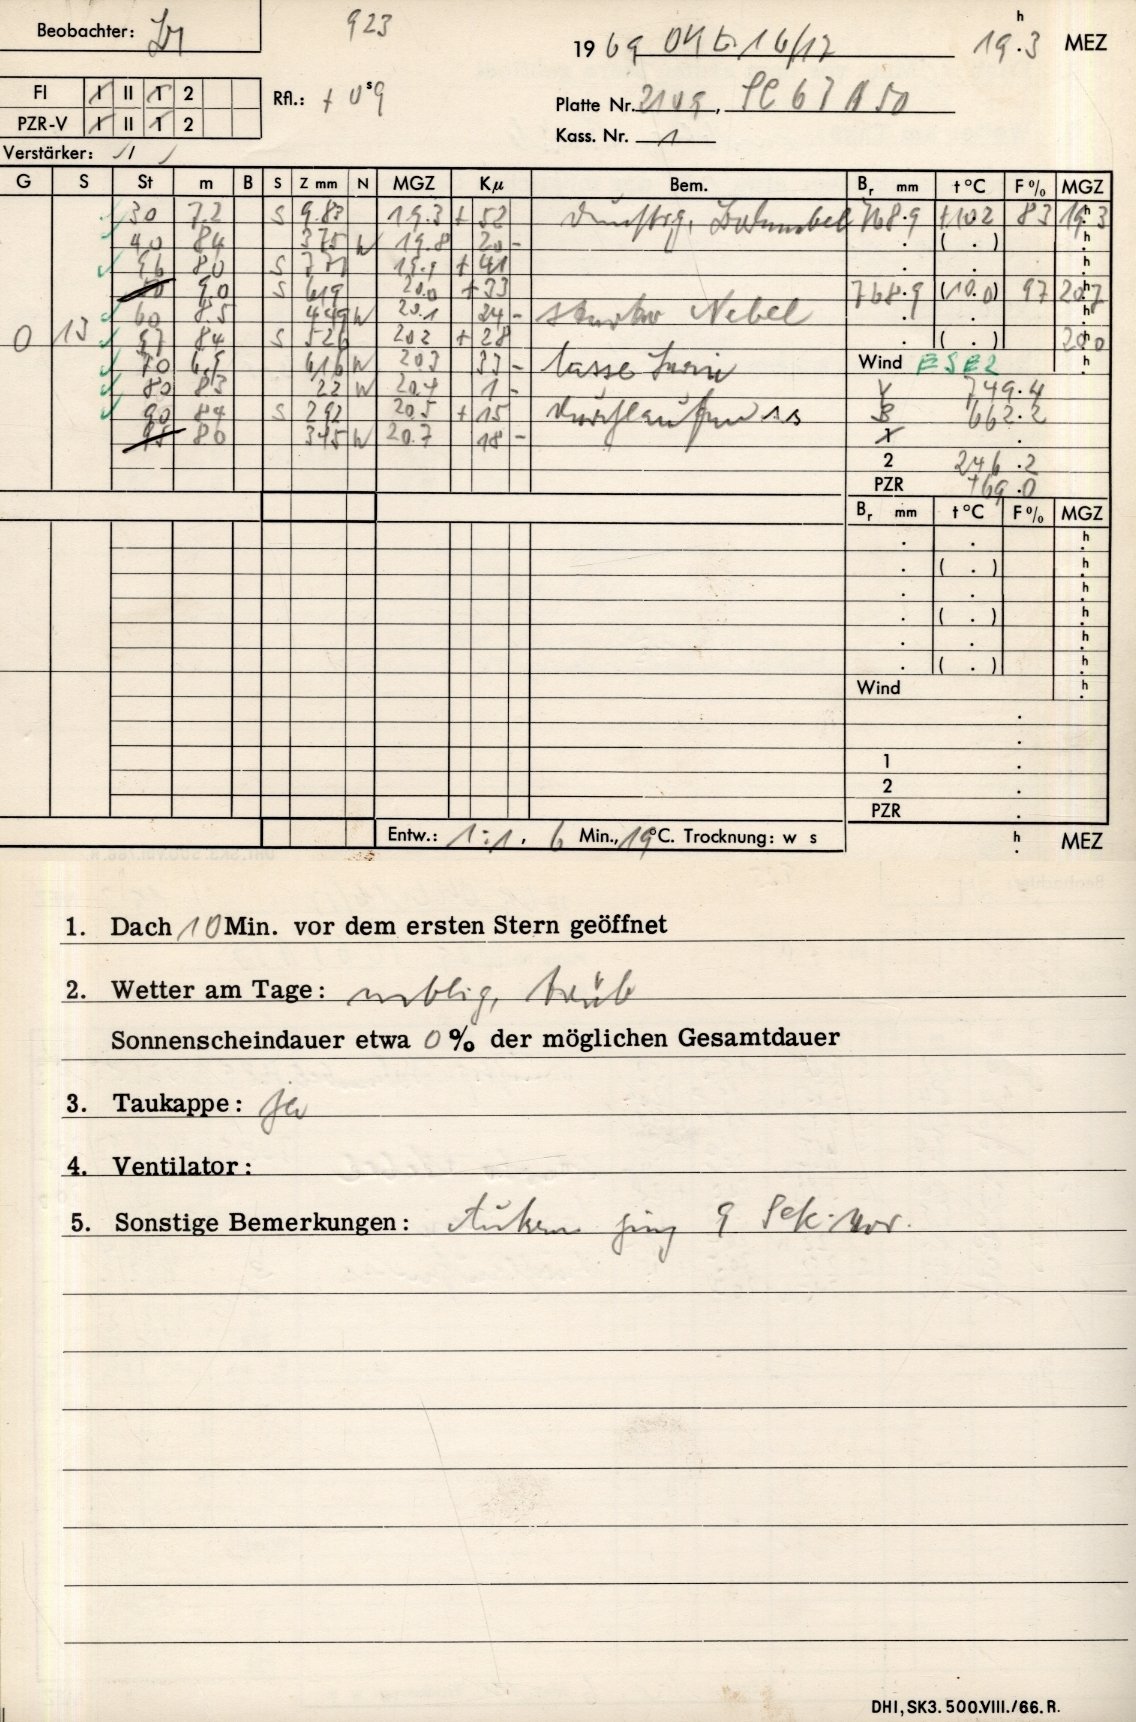 Beobachter:
923
19 69 Okt. 16/17 19 h . 3 MEZ
FI I II 1 2
PZR-V I II 1 2
Rfl.: + 0 s 9
Platte Nr. 2109,
Kass. Nr. 1
Verstärker: /
G S St m B S Z mm N MGZ Kμ Bem. Br mm t°C F% MGZ
30 7.2 S 9.83 19.3 + 52 dunstig, Bodennebel 768.9 +10.2 83 19 h . 3
40 84 375 W 19.8 20 - . ( . ) h .
46 80 S 771 19.9 + 41 . . h .
50 9.0 S 619 20.0 + 33 768.9 (10.0) 97 20 h . 7
60 85 449 W 20.1 24 - starker Nebel . . h .
0 13 67 84 S 526 202 + 28 . ( . ) h
70 6.5 616 W 203 33 - Wind ESE2 h .
80 83 22 W 20.4 1 - V 749.4
90 84 S 292 20.5 + 15 662.2
95 80 345 W 20.7 18 - 1 .
2 246.2
PZR +69.0
Br mm t°C F% MGZ
. . h .
. ( . ) h .
. . h .
. ( . ) h .
. . h .
. ( . ) h .
Wind h .
.
.
1 .
2 .
PZR .
Entw.: 1:1, 6 Min., 19°C. Trocknung: w s h . MEZ
1. Dach 10 Min. vor dem ersten Stern geöffnet
2. Wetter am Tage: neblig, trüb
Sonnenscheindauer etwa 0 % der möglichen Gesamtdauer
3. Taukappe: ja
4. Ventilator:
5. Sonstige Bemerkungen: ging 9 Sek. vor.
DHI, SK3. 500.VIII./66. R.